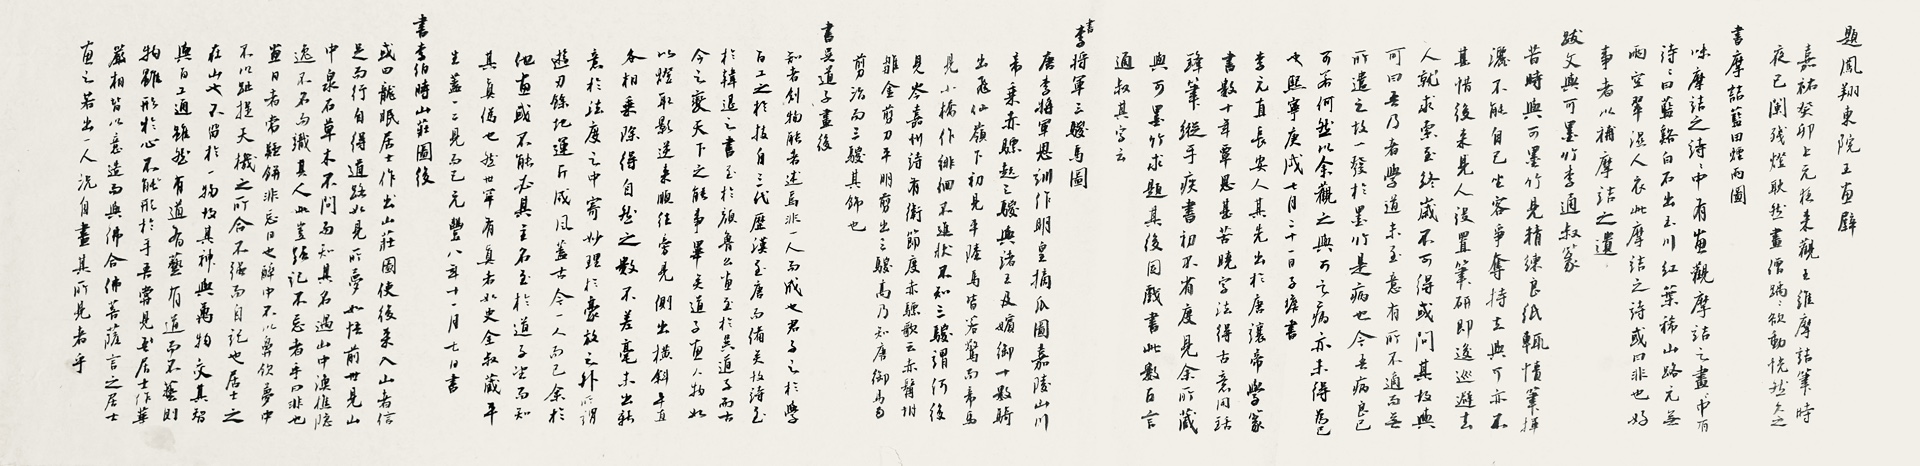 題鳳翔東院王畫壁
嘉祐癸卯上元夜來觀王維摩詰筆時
夜已闌殘燈耿然畫僧踽踽欲動恍然久之
書摩詰藍田煙雨圖
味摩詰之詩詩中有畫觀摩詰之畫畫中有
詩詩曰藍谿白石出玉川紅葉稀山路元無
雨空翠濕人衣此摩詰之詩或曰非也好
事者以補摩詰之遺
跋文與可墨竹李通叔篆
昔時與可墨竹見精練良紙輒憤筆揮
灑不能自已坐客爭奪持去與可亦不
甚惜後來見人設置筆硯即逡巡避去
人就求索至終歲不可得或問其故與
可曰吾乃者學道未至意有所不適而無
所遣之故一發於墨竹是病也今吾病良已
可若何然以余觀之與可之病亦未得為已
也熙寧庚戌七月二十一日子瞻書
李元直長安人其先出於唐讓帝學篆
書數十年覃思甚苦曉字法得古意用銛
鋒筆縱手疾書初不省度見余所藏
與可墨竹求題其後因戲書此數百言
通叔其字云
書李將軍三鬉馬圖
唐李將軍思訓作明皇摘瓜圖嘉陵山川
帝乘赤驃起三鬉與諸王及嬪御十數騎
出飛仙嶺下初見平陸馬皆若驚而帝馬
見小橋作徘徊不進狀不知三鬉謂何後
見岑嘉州詩有衛節度赤驃歌云赤髯胡
雛金剪刀平明剪出三鬉高乃知唐御馬多
剪治而三鬉其飾也
書吳道子畫後
知者創物能者述焉非一人而成也君子之於學
百工之於技自三代歷漢至唐而備矣故詩至
於韓退之書至於顏魯公畫至於吳道子而古
今之變天下之能事畢矣道子畫人物如
以燈取影逆來順往旁見側出橫斜平直
各相乘除得自然之數不差毫末出新
意於法度之中寄妙理於豪放之外所謂
遊刃餘地運斤成風蓋古今一人而已余於
他畫或不能必其主名至於道子望而知
其真偽也然世罕有真者如史全叔藏平
生蓋一二見而已元豐八年十一月七日書
書李伯時山莊圖後
或曰龍眠居士作出山莊圖使後來入山者信
足而行自得道路如見所夢如悟前世見山
中泉石草木不問而知其名遇山中漁樵隱
逸不名而識其人此豈強記不忘者乎曰非也
畫日者常疑餅非忘日也醉中不以鼻飲夢中
不以趾捉天機之所合不強而自記也居士之
在山也不留於一物故其神與萬物交其智
與百工通雖然有道有藝有道而不藝則
物雖形於心不能形於手吾嘗見居士作華
嚴相皆以意造而與佛合佛菩薩言之居士
畫之若出一人況自畫其所見者乎